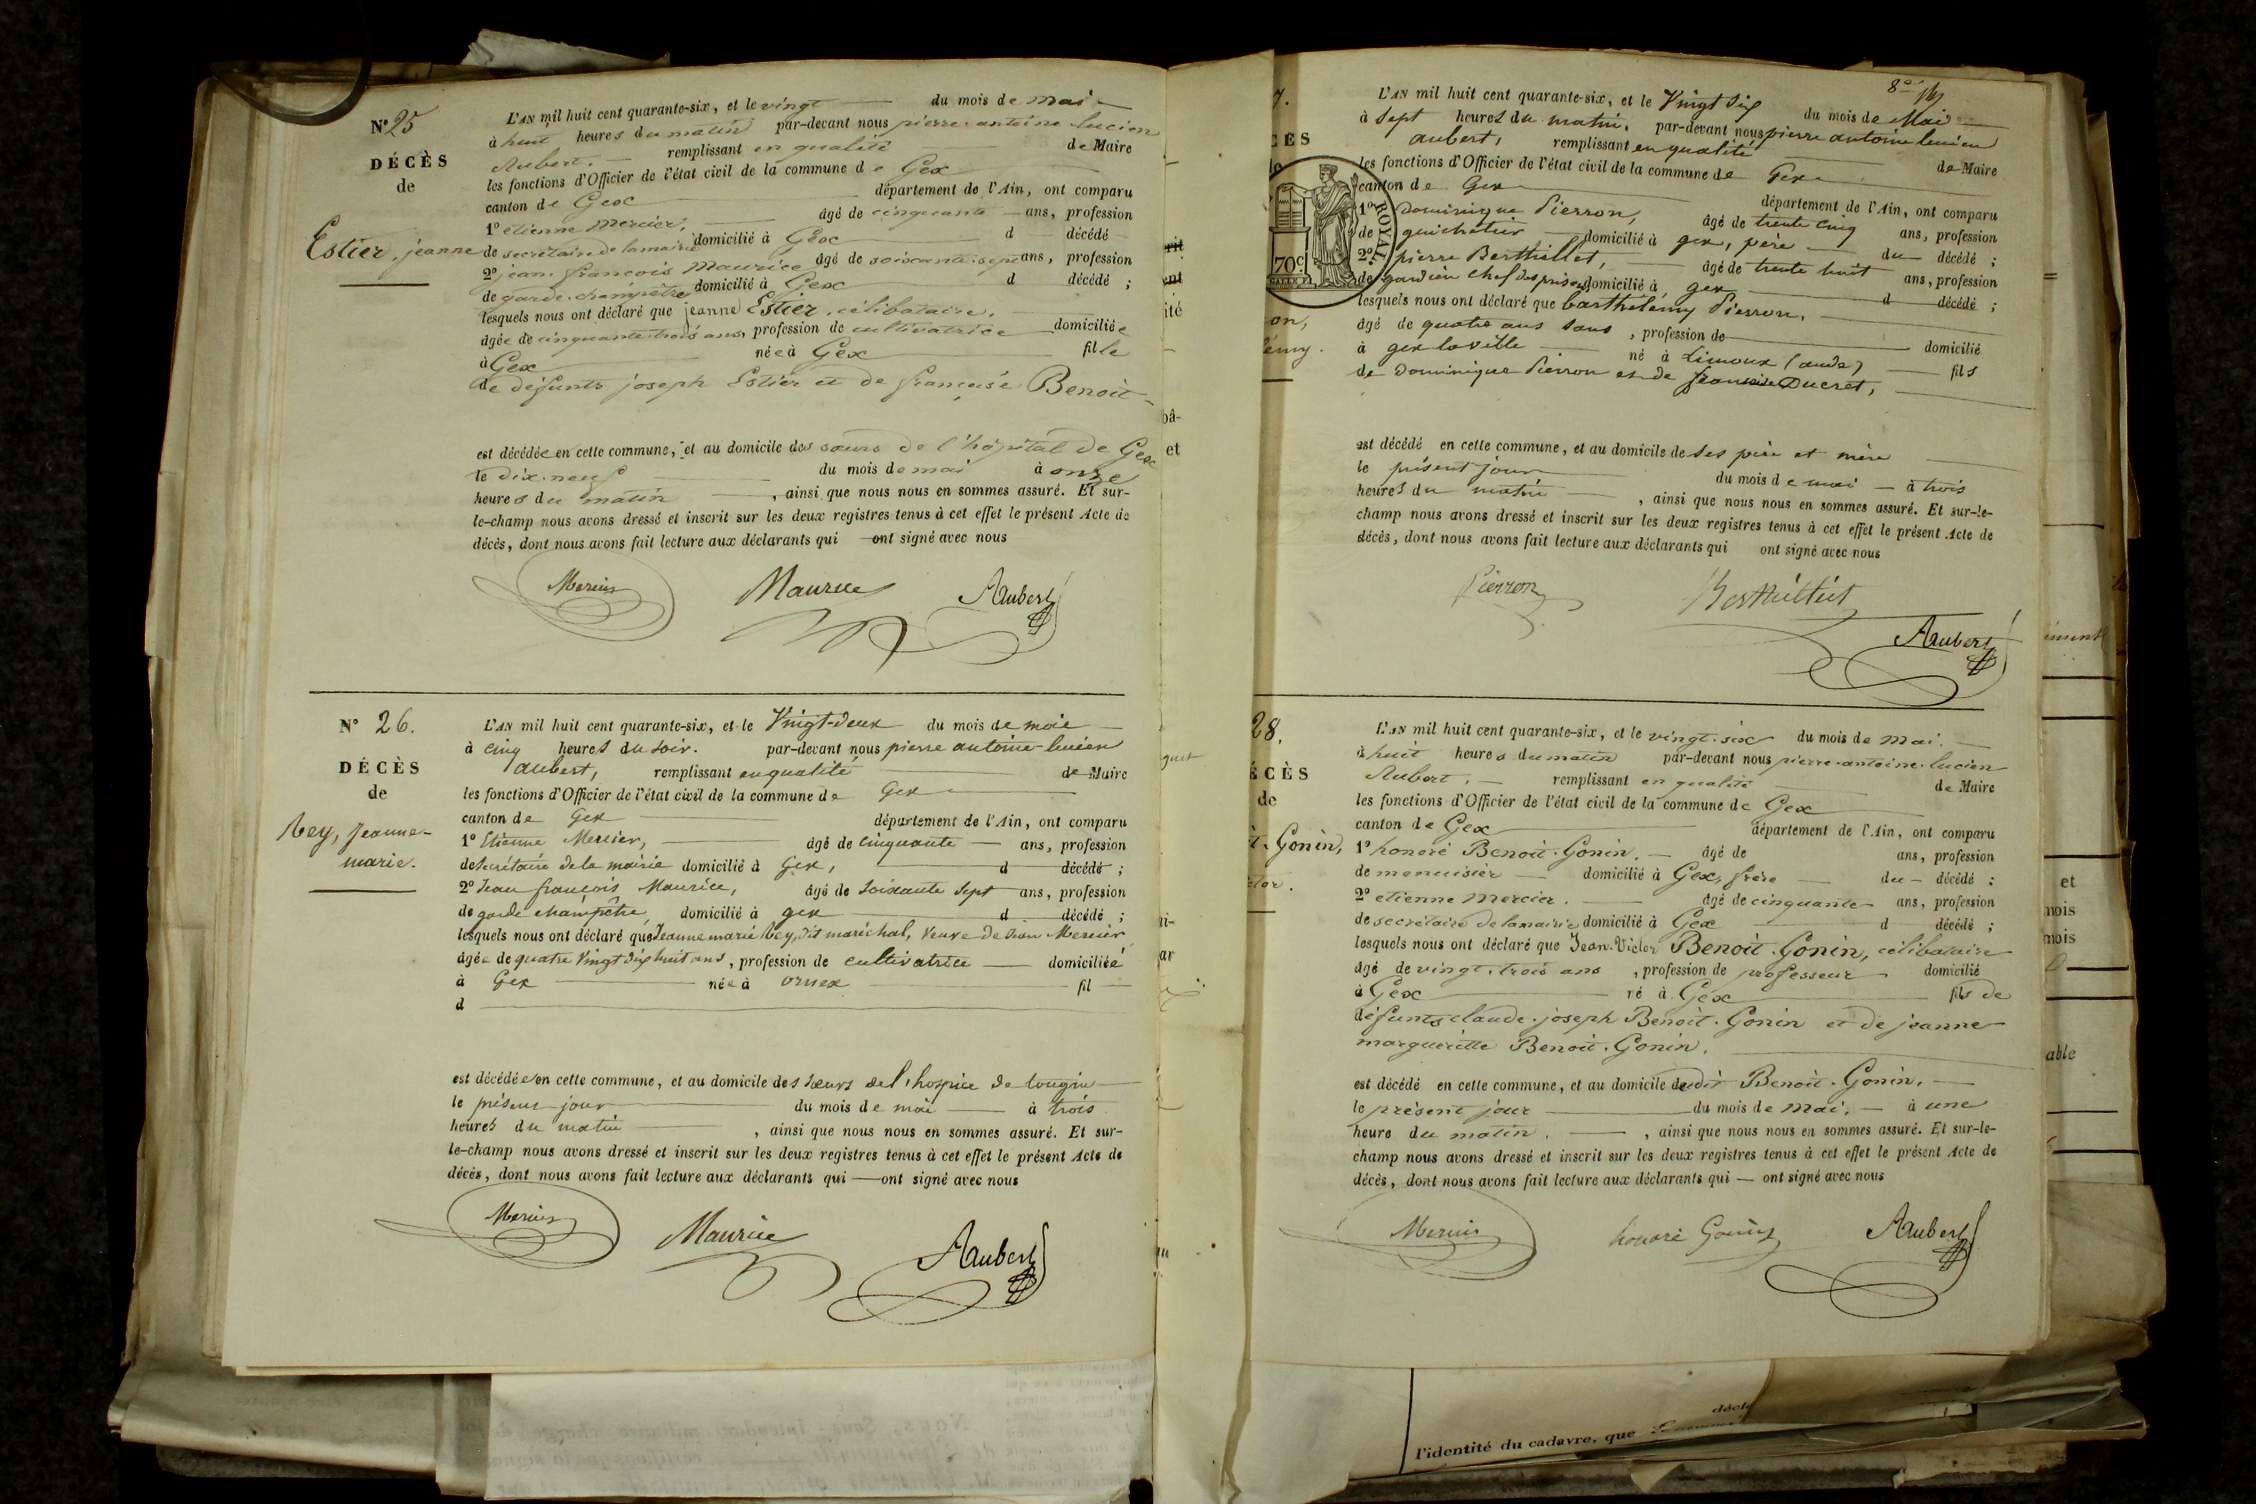 N° 25
DÉCÈS
de
Estier, jeanne
L'AN mil huit cent quarante-six, et le vingt du mois de mai
à huit heures du matin par-devant nous pierre-antoine-lucien
Aubert. remplissant en qualité de Maire
les fonctions d'Officier de l'état civil de la commune de Gex
canton de Gex département de l'Ain, ont comparu
1° etienne Mercier, âgé de cinquante ans, profession
de secrétaire de la mairie domicilié à Gex d décédé
2° jean françois Maurice âgé de soixante-sept ans, profession
de garde-champêtre domicilié à Gex d décédé ;
lesquels nous ont déclaré que jeanne Estier, célibataire,
âgée de cinquante-trois ans, profession de cultivatrice domiciliée
à Gex née à Gex fille
de défunts joseph Estier et de françoise Benoit
est décédée en cette commune, et au domicile des sœurs de l'hôpital de Gex
le dix-neuf du mois de mai à onze
heures du matin , ainsi que nous nous en sommes assuré. Et sur-
le-champ nous avons dressé et inscrit sur les deux registres tenus à cet effet le présent Acte de
décès, dont nous avons fait lecture aux déclarants qui ont signé avec nous
Mercier Maurice Aubert
N° 26.
DÉCÈS
de
Rey, Jeanne-
marie.
L'AN mil huit cent quarante-six, et le Vingt-deux du mois de mai
à cinq heures du soir. par-devant nous pierre antoine lucien
aubert, remplissant en qualité de Maire
les fonctions d'Officier de l'état civil de la commune de Gex
canton de Gex département de l'Ain, ont comparu
1° Etienne Mercier, âgé de cinquante ans, profession
de secrétaire de la mairie domicilié à Gex, d décédé ;
2° Jean françois Maurice, âgé de soixante sept ans, profession
de garde champêtre, domicilié à gex d décédé ;
lesquels nous ont déclaré que Jeanne marie Rey, dit maréchal, veuve de Jean Mercier
âgée de quatre vingt dix huit ans, profession de cultivatrice domiciliée
à Gex née à ornex fil
d
est décédée en cette commune, et au domicile des sœurs de l'hospice de tougin
le présent jour du mois de mai à trois
heures du matin , ainsi que nous nous en sommes assuré. Et sur-
le-champ nous avons dressé et inscrit sur les deux registres tenus à cet effet le présent Acte de
décès, dont nous avons fait lecture aux déclarants qui ont signé avec nous
Mercier Maurice Aubert
7.
CÈS
ROYAL.
70 c.
on,
émy.
L'AN mil huit cent quarante-six, et le Vingt six du mois de Mai
à sept heures du matin. par-devant nous pierre antoine lucien
aubert, remplissant en qualité de Maire
les fonctions d'Officier de l'état civil de la commune de Gex
canton de Gex département de l'Ain, ont comparu
1° Dominique Pierron, âgé de trente cinq ans, profession
de guichetier domicilié à gex, père du décédé ;
2° pierre Berthillet, âgé de trente huit ans, profession
de gardien chef des prisons domicilié à gex d décédé ;
lesquels nous ont déclaré que barthélémy Pierron,
âgé de quatre ans sans , profession de domicilié
à gex la ville né à Limoux (aude) fils
de Dominique Pierron et de françoise Ducret,
est décédé en cette commune, et au domicile de ses père et mère
le présent jour du mois de mai à trois
heures du matin , ainsi que nous nous en sommes assuré. Et sur-le-
champ nous avons dressé et inscrit sur les deux registres tenus à cet effet le présent Acte de
décès, dont nous avons fait lecture aux déclarants qui ont signé avec nous
Pierron Berthillet
Aubert
28.
ÉCÈS
de
t-Gonin,
ctor.
L'AN mil huit cent quarante-six, et le vingt-six du mois de mai.
à huit heures du matin par-devant nous pierre-antoine-lucien
Aubert. remplissant en qualité de Maire
les fonctions d'Officier de l'état civil de la commune de Gex
canton de Gex département de l'Ain, ont comparu
1° honoré Benoit-Gonin. âgé de ans, profession
de menuisier domicilié à Gex, frère du décédé ;
2° etienne Mercier. âgé de cinquante ans, profession
de secrétaire de la mairie domicilié à Gex d décédé ;
lesquels nous ont déclaré que Jean-Victor Benoit-Gonin, célibataire
âgé de vingt-trois ans , profession de professeur domicilié
à Gex né à Gex fils de
défunts claude-joseph Benoit-Gonin et de jeanne
margueritte Benoit-Gonin.
est décédé en cette commune, et au domicile dudit Benoit-Gonin.
le présent jour du mois de mai, à une
heure du matin. , ainsi que nous nous en sommes assuré. Et sur-le-
champ nous avons dressé et inscrit sur les deux registres tenus à cet effet le présent Acte de
décès, dont nous avons fait lecture aux déclarants qui ont signé avec nous
Mercier honoré Gonin Aubert
l'identité du cadavre, que